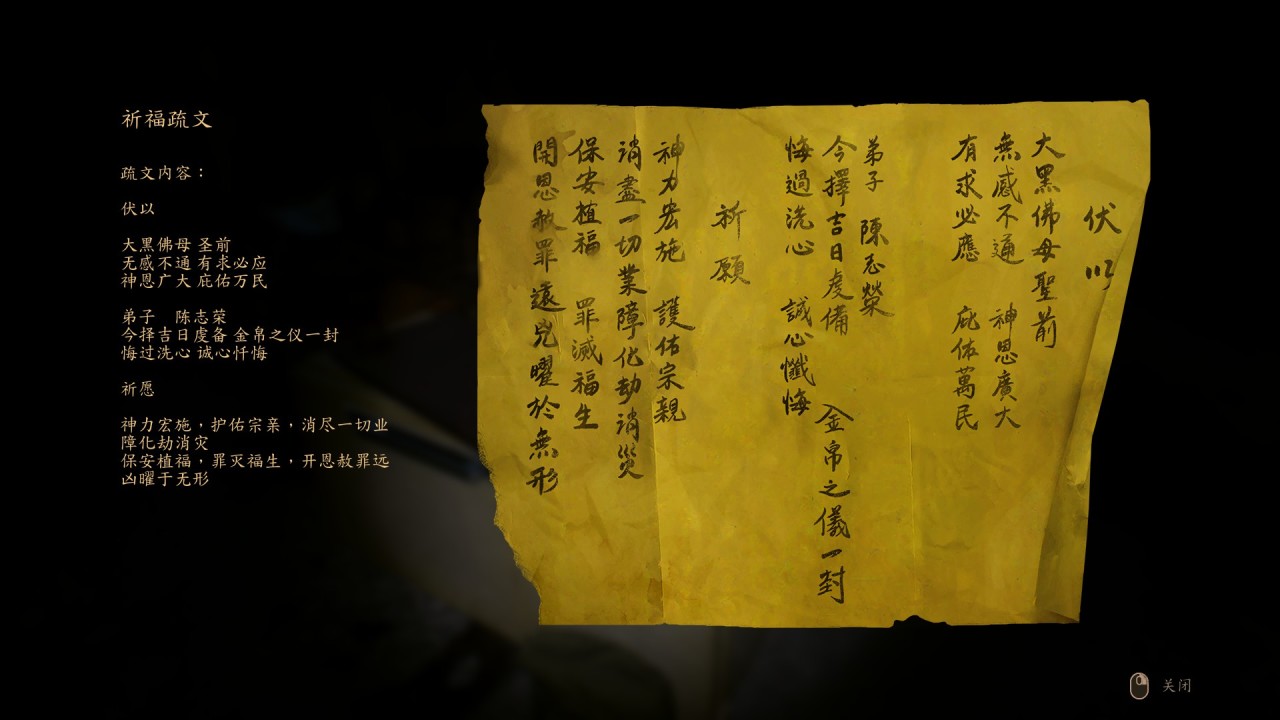 祈福疏文
疏文内容：
伏以
大黑佛母 圣前
无感不通 有求必应
神恩广大 庇佑万民
弟子　陈志荣
今择吉日虔备 金帛之仪一封
悔过洗心 诚心忏悔
祈愿
神力宏施，护佑宗亲，消尽一切业
障化劫消灾
保安植福，罪灭福生，开恩赦罪远
凶曜于无形
伏以
大黑佛母聖前
無感不通　神恩廣大
有求必應　庇佑萬民
弟子　陳志榮
今擇吉日虔備　金帛之儀一封
悔過洗心　誠心懺悔
祈願
神力宏施　護佑宗親
消盡一切業障化劫消災
保安植福　罪滅福生
開恩赦罪遠兇曜於無形
关闭